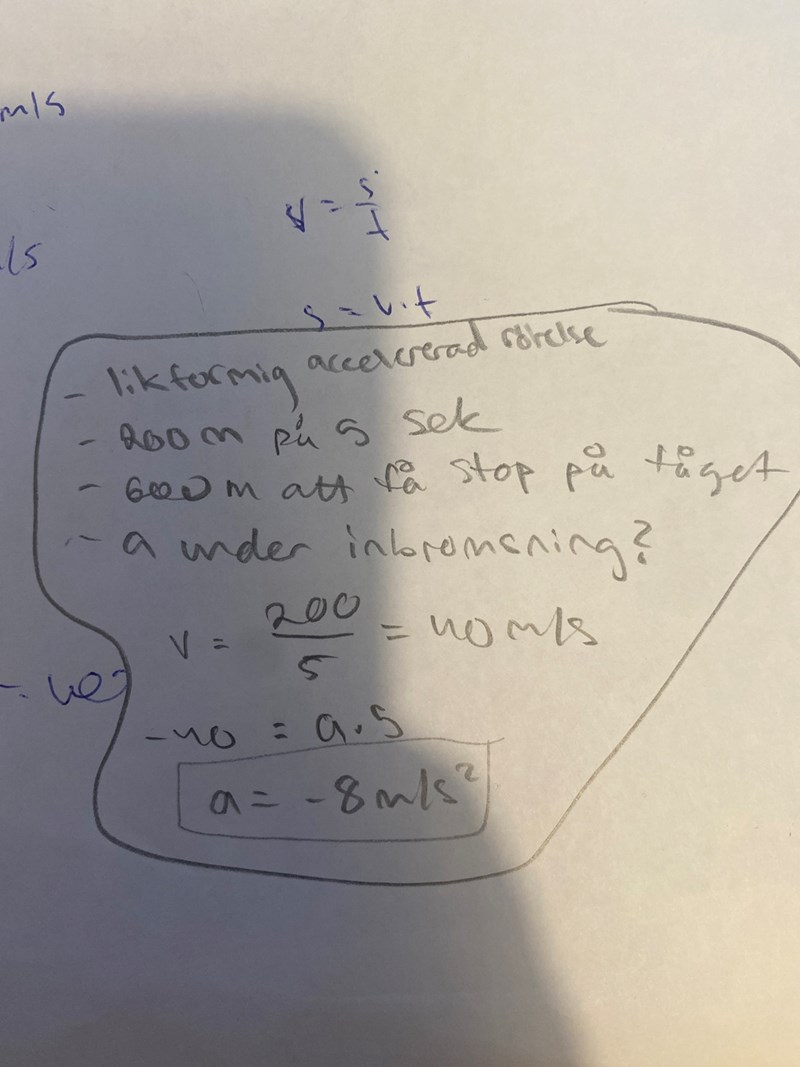 m/s
/s
v = s/t
s = v·t
- likformig accelererad rörelse
- 200m på 5 sek
- 600m att få stop på tåget
- a under inbromsning?
v = 200/5 = 40 m/s
-40 = a·5
a = -8 m/s²